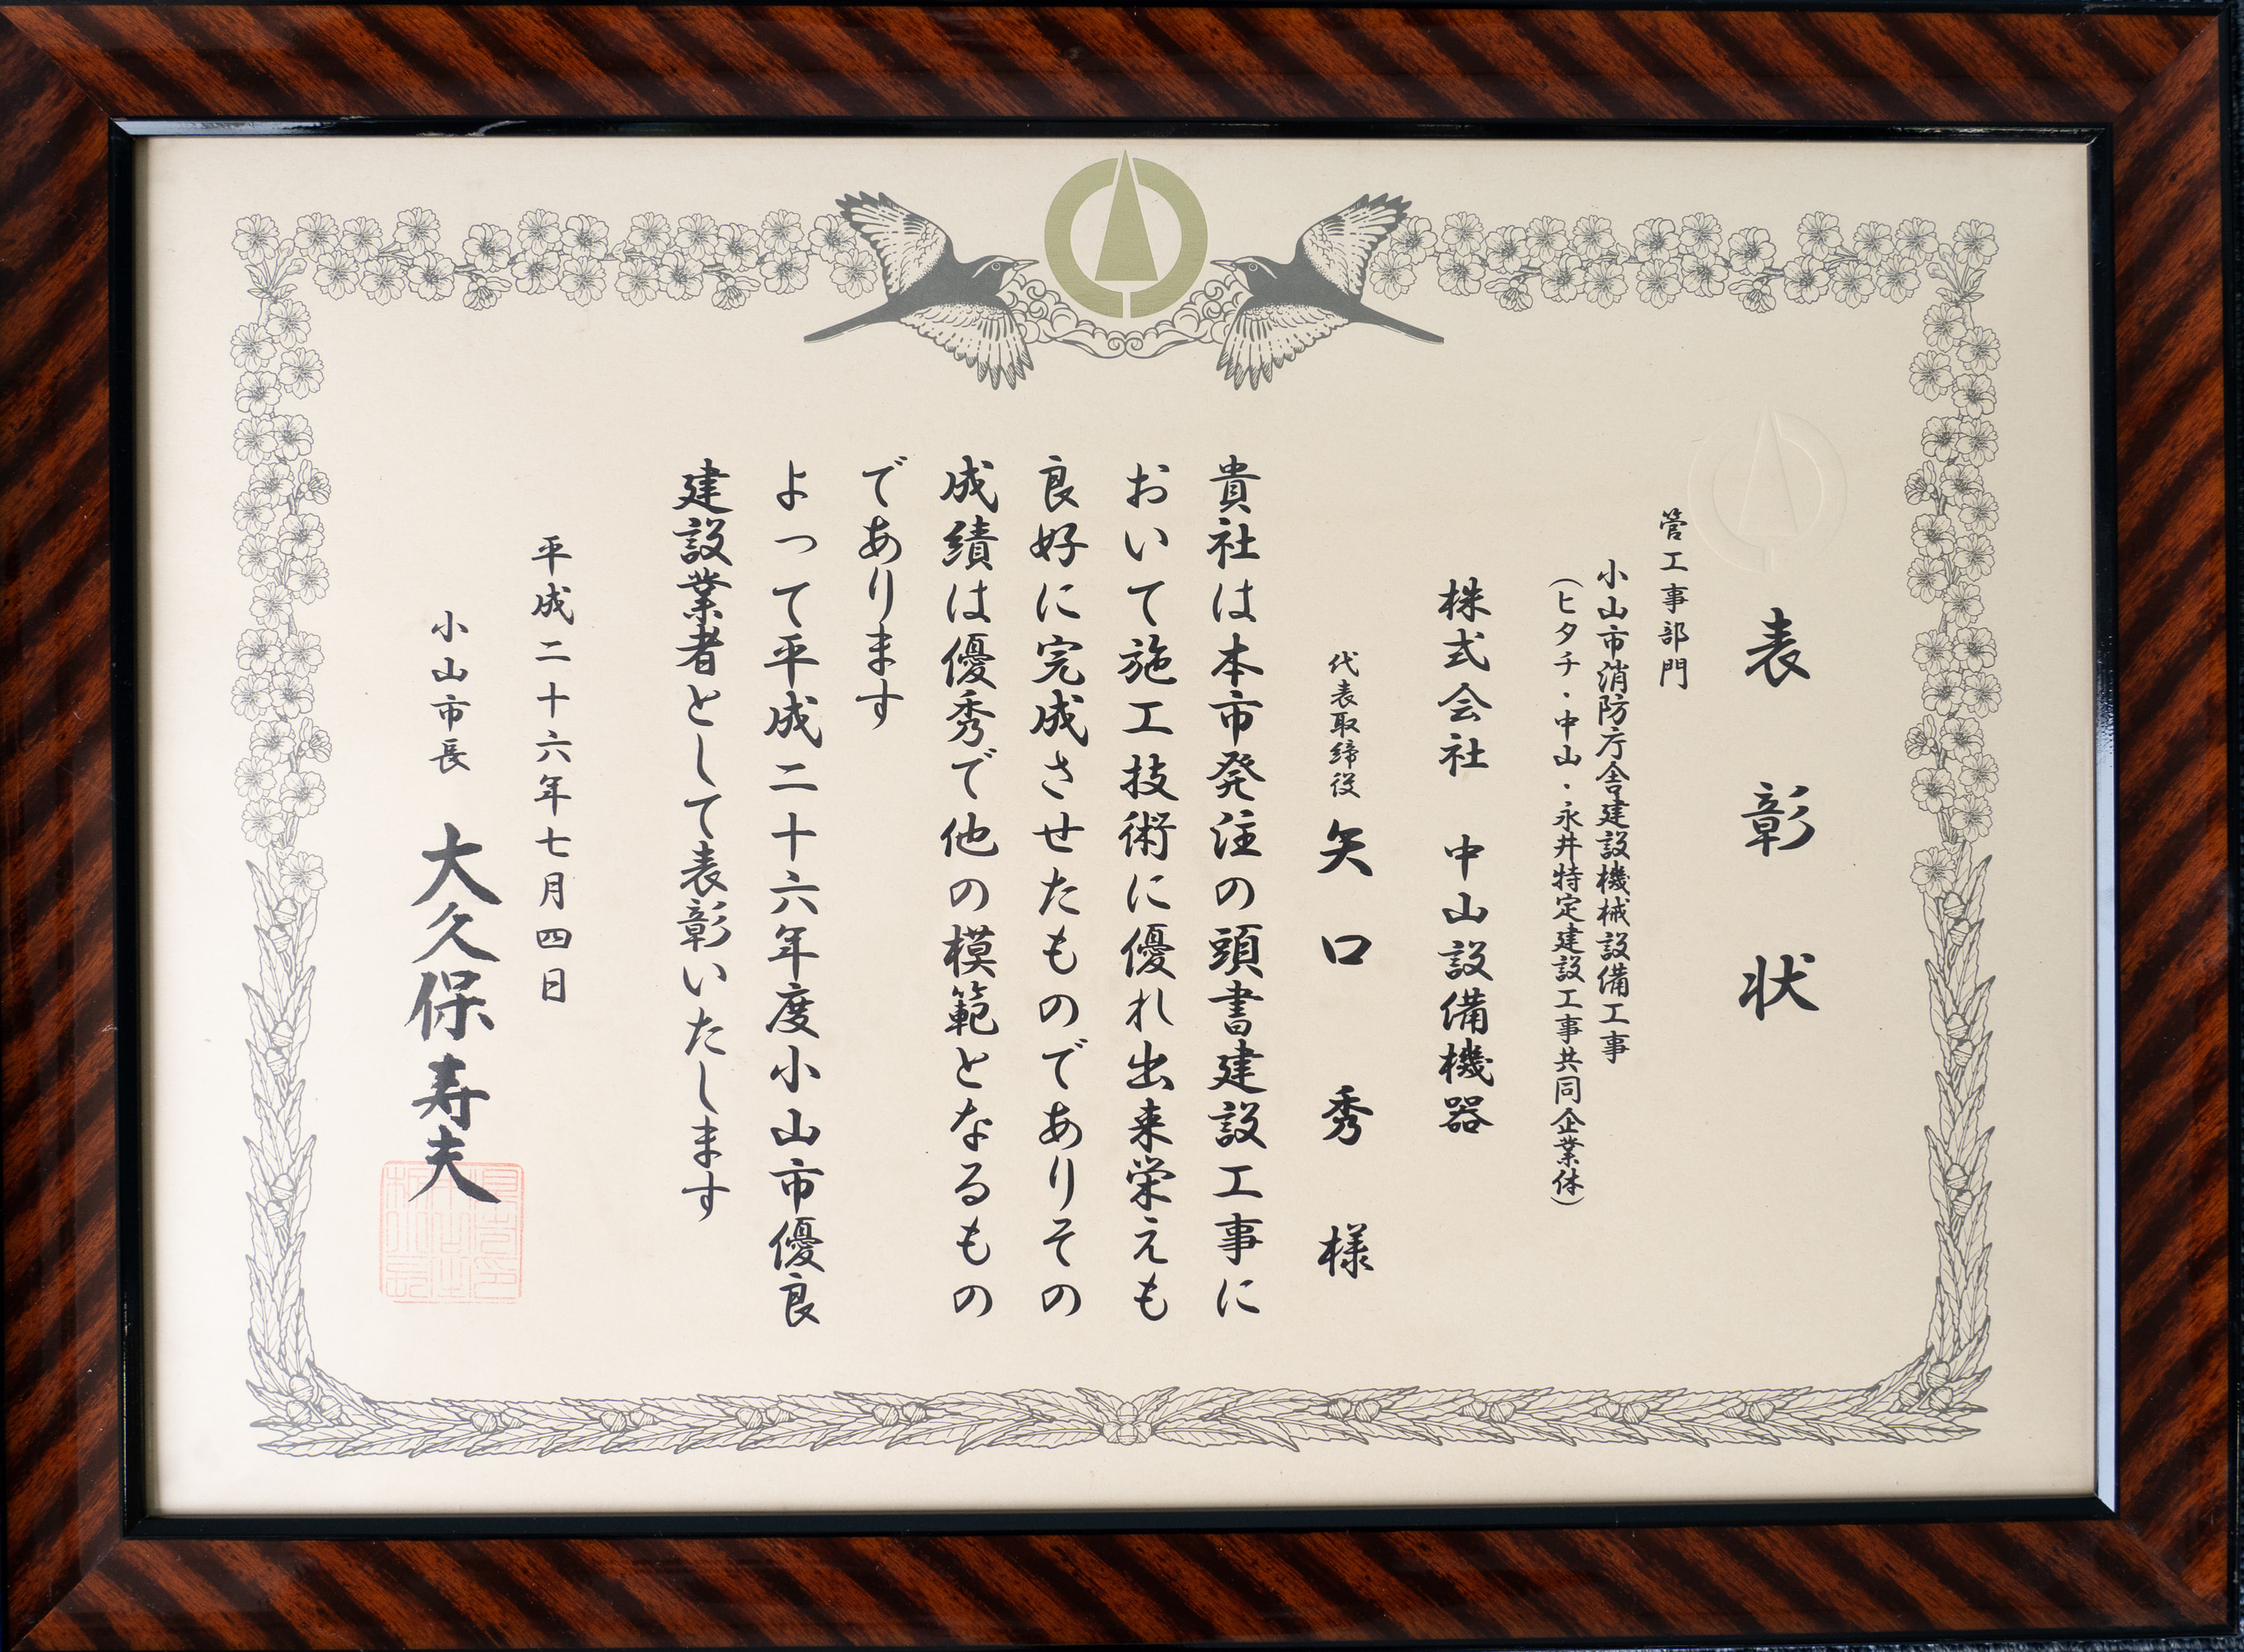 表彰状
管工事部門
小山市消防庁舎建設機械設備工事
(ヒタチ・中山・永井特定建設工事共同企業体)
株式会社 中山設備機器
代表取締役 矢口秀様
貴社は本市発注の頭書建設工事に
おいて施工技術に優れ出来栄えも
良好に完成させたものでありその
成績は優秀で他の模範となるもの
であります
よって平成二十六年度小山市優良
建設業者として表彰いたします
平成二十六年七月四日
小山市長 大久保寿夫